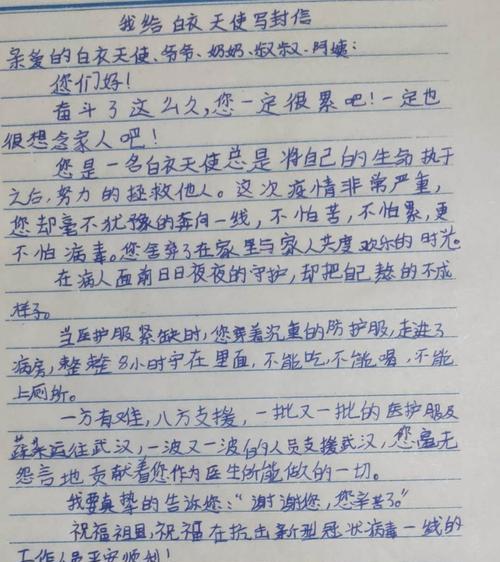 我给白衣天使写封信
亲爱的白衣天使、爷爷、奶奶、叔叔、阿姨:
您们好!
奋斗了这么久,您一定很累吧!一定也
很想念家人吧!
您是一名白衣天使总是将自己的生命执于
之后,努力的拯救他人。这次疫情非常严重,
您却毫不犹豫的奔向一线,不怕苦,不怕累,更
不怕病毒。您舍弃了在家里与家人共度欢乐的时光。
在病人面前日日夜夜的守护,却把自己熬的不成
样子。
当医护服紧缺时,您穿着沉重的防护服,走进了
病房,整整8小时守在里面,不能吃,不能喝,不能
上厕所。
一方有难,八方支援,一批又一批的医护服及
蔬菜运往武汉,一波又一波的人员支援武汉,您毫无
怨言地贡献着您作为医生所能做的一切。
我要真挚的告诉您:“谢谢您,您辛苦了。”
祝福祖国,祝福在抗击新型冠状病毒一线的
工作人员平安顺利!